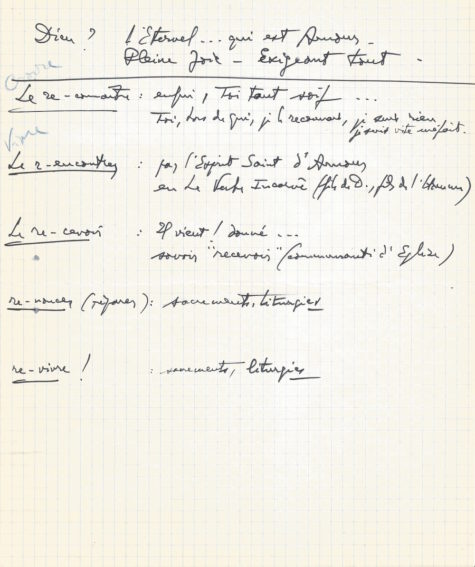 Dieu ? l'Eternel ... qui est Amour -
Pleine Joie - Exigeant tout -
Croire
Le re-connaître : enfin, Toi tant soif ...
Toi, hors de qui, je le reconnais, je suis rien
je suis vite
Vivre
Le r-encontrer : par l'Esprit Saint d'Amour
en Le Verbe Incarné (fils de D., fils de l'Homme)
Le re-cevoir : Il vient ! donné ...
savoir "recevoir" (communauté d'Eglise)
re-nouer (réparer) : sacrements, liturgies
re-vivre ! : sacrements, liturgies